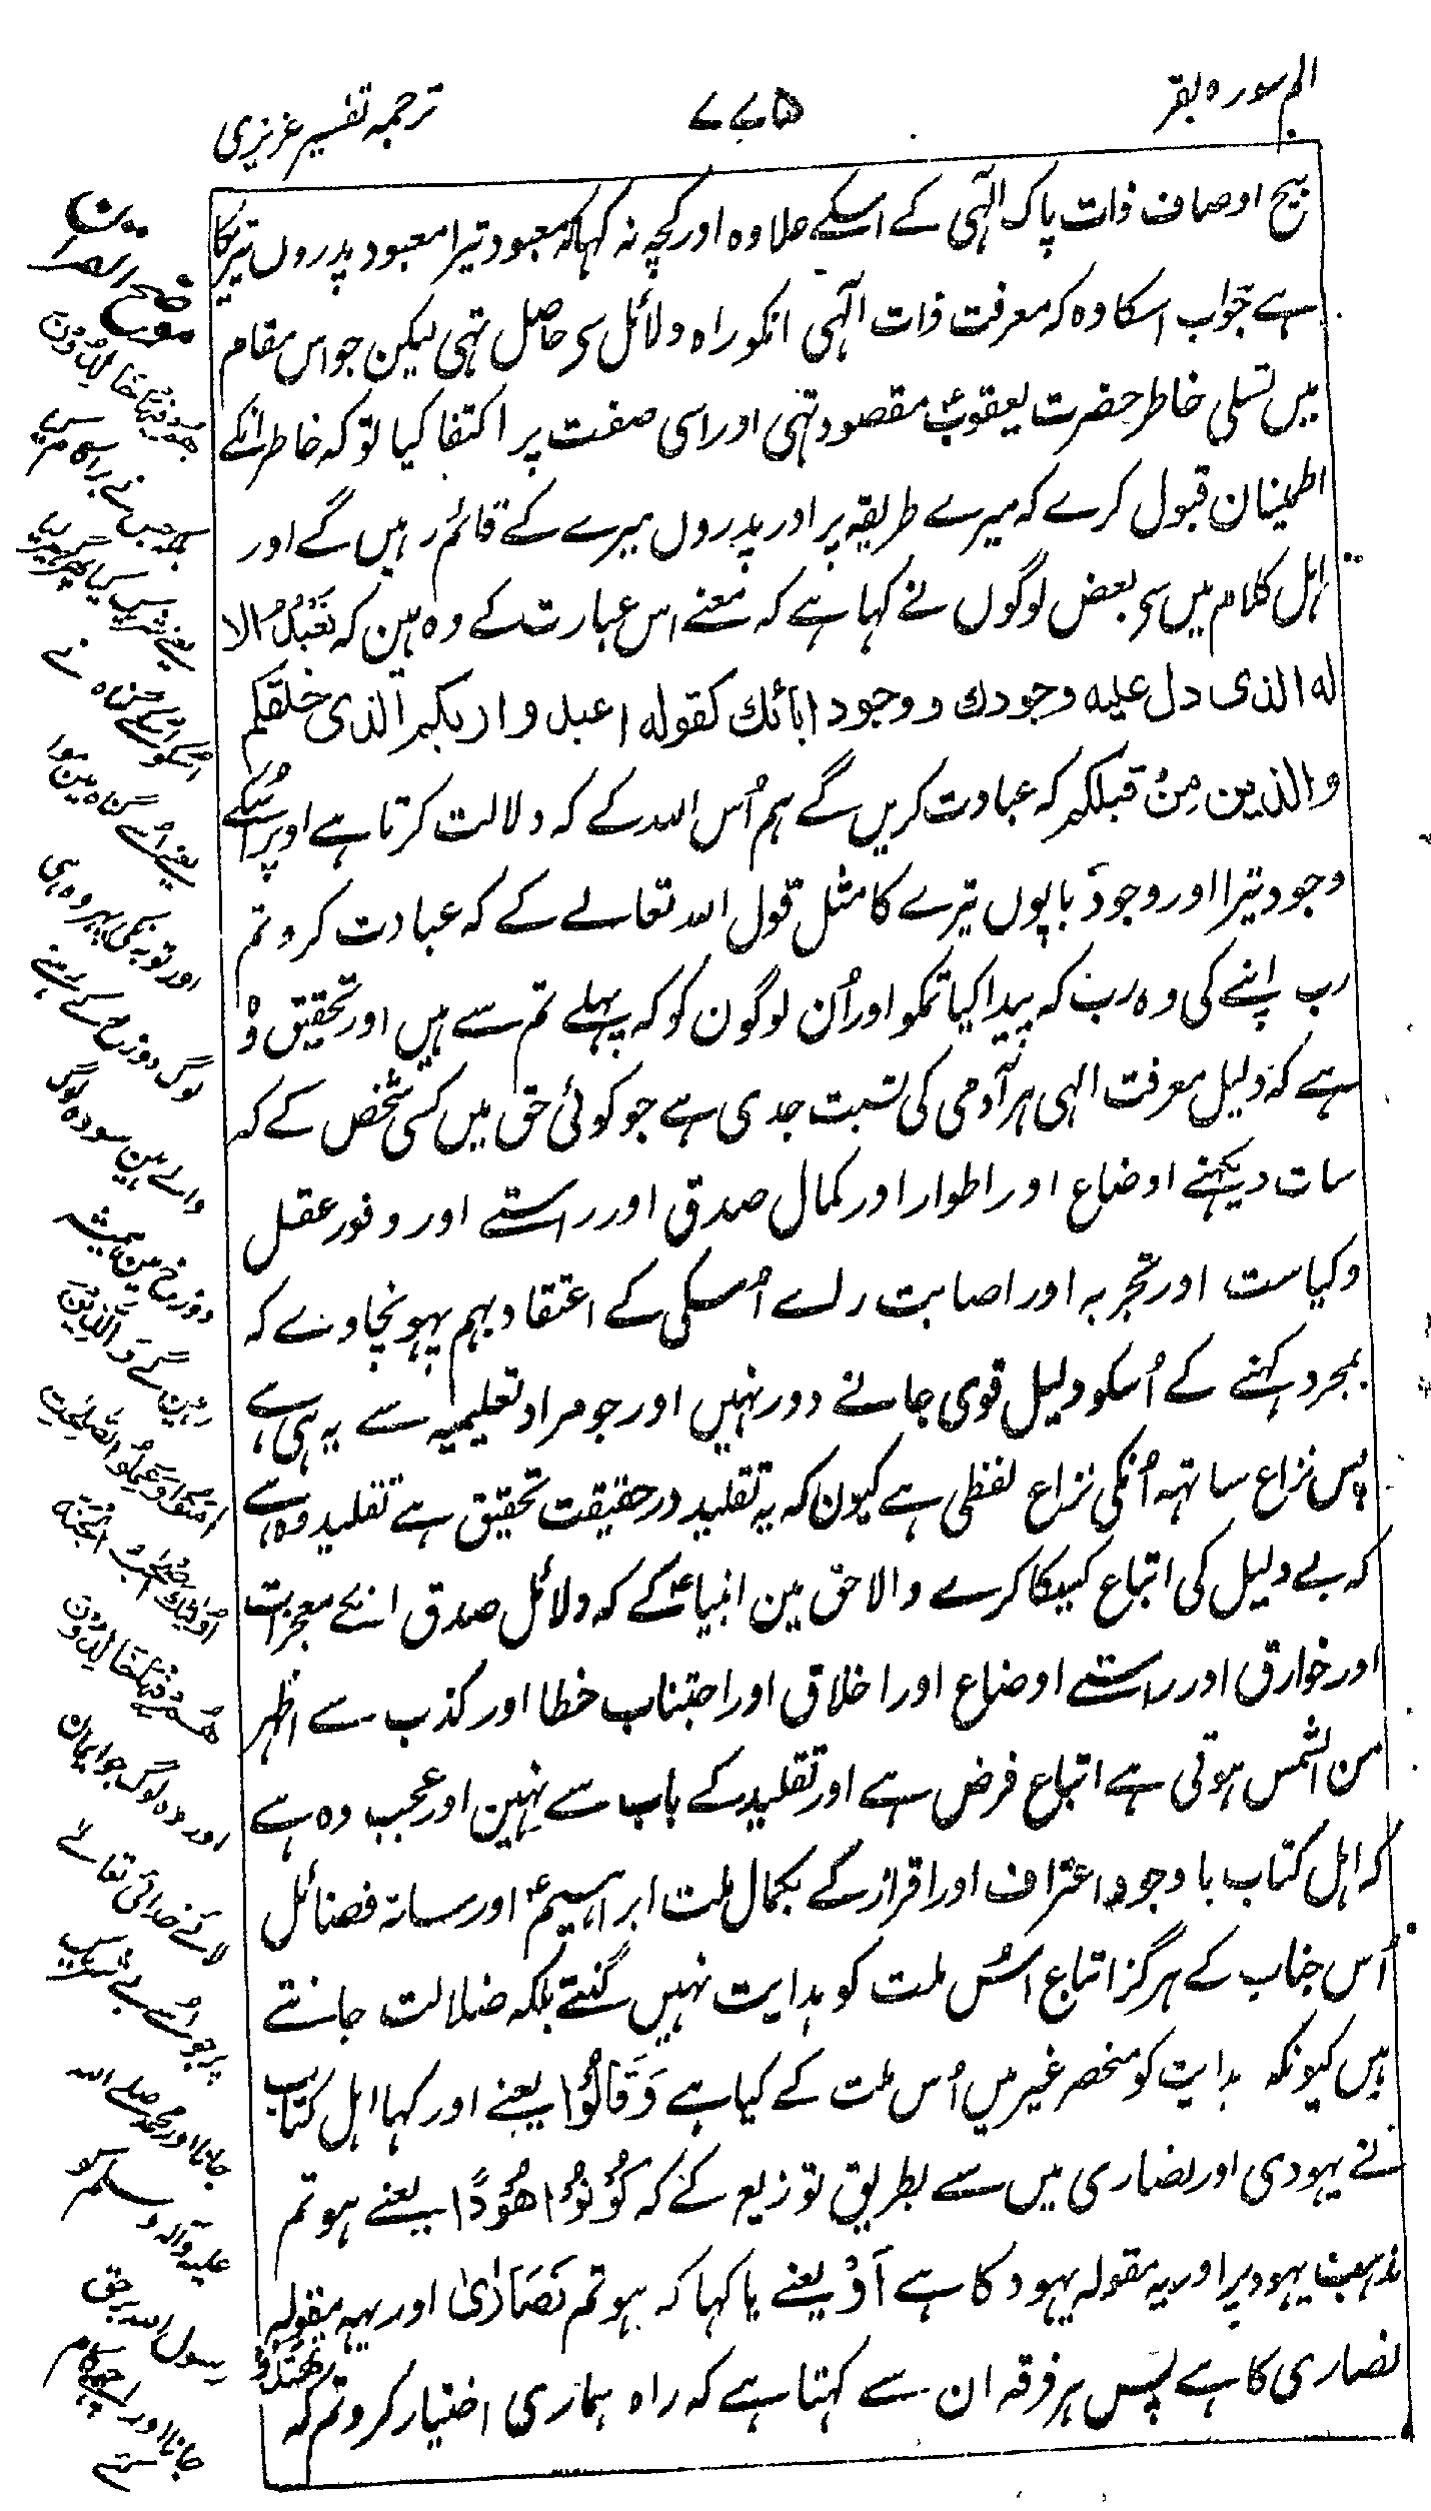 الم سورہ بقر
۷۷۵
ترجمہ تفسیر عزیزی
بیچ اوصاف ذات پاک الٰہی کے اسکے علاوہ اور کچہ نہ کہا کہ معبود تیرا معبود پدروں تیرے کا
ہے جواب اسکا وہ کہ معرفت ذات الٰہی انکو راہ دلائل سی حاصل تہی لیکن جو اس مقام
میں تسلی خاطر حضرت یعقوبؑ مقصود تہی اور اسی صفت پر اکتفا کیا تو کہ خاطر انکے
اطمینان قبول کرے کہ میرے طریقہ پر اور پدروں میرے کے قائم رہیں گے اور
اہل کلام میں سی بعض لوگوں نے کہا ہے کہ معنے اس عبارت کے وہ ہین کہ نَعْبُدُ الا
لہ الذی دل علیہ وجودك و وجود ابائك کقولہ اعبدوا ربکم الذی خلقکم
والذین مِنْ قبلکم کہ عبادت کریں گے ہم اُس اللہ کے کہ دلالت کرتا ہے اوپر اُسکے
وجود تیرا اور وجود باپوں تیرے کا مثل قول اللہ تعالے کے کہ عبادت کرو تم
رب اپنے کی وہ رب کہ پیدا کیا تمکو اور اُن لوگون کو کہ پہلے تم سے ہیں اور تحقیق وہ
ہے کہ دلیل معرفت الہی ہر آدمی کی نسبت جدی ہے جو کوئی حق میں کسی شخص کے کہ
سات دیکہنے اوضاع اور اطوار اور کمال صدق اور راستے اور وفور عقل
و کیاست اور تجربہ اور اصابت راے اُسکی کے اعتقاد بہم پہونچاوے کہ
بمجرد کہنے کے اُسکو دلیل قوی جانے دور نہیں اور جو مراد تعلیمیہ سے یہ ہی ہے
پس نزاع ساتہہ اُنکی نزاع لفظی ہے کیون کہ یہ تقلید در حقیقت تحقیق ہے تقلید وہ ہے
کہ بے دلیل کی اتباع کسیکا کرے والا حق مین انبیاءؑ کے کہ دلائل صدق انکے معجزات
اور خوارق اور راستے اوضاع اور اخلاق اور اجتناب خطا اور کذب سے اظہر
من الشمس ہوتی ہے اتباع فرض ہے اور تقلید کے باب سے نہین اور عجب وہ ہے
کہ اہل کتاب باوجود اعتراف اور اقرار کے بکمال ملت ابراہیمؑ اور ساتہ فضائل
اُس جناب کے ہرگز اتباع اُس ملت کو ہدایت نہیں گنتے بلکہ ضلالت جانتے
ہیں کیونکہ ہدایت کو منحصر غیر میں اُس ملت کے کیا ہے وَقَالُوْا یعنے اور کہا اہل کتاب
نے یہودی اور نصاری میں سے بطریق توزیع کے کہ کُوْنُوْا هُوْدًا یعنے ہو تم
مذہب یہود پر اور یہ مقولہ یہود کا ہے اَوْ یعنے یا کہا کہ ہو تم نَصَارٰی اور یہہ مقولہ
نصاری کا ہے پس ہر فرقہ ان سے کہتا ہے کہ راہ ہماری اختیار کرو تم کہ تَهْتَدُوْ
هُمْ فِیْهَا خَالِدُوْنَ
اُسکو اُسکے گناہ نے
یعنے اُسے گناہ مین موا
اور توبہ نکی پہر وہ ہی
لوگ دوزخ کے رہنے
والے ہین سو وہ لوگ
دوزخ مین ہمیشہ
رہین گے وَالَّذِیْنَ
اٰمَنُوْا وَعَمِلُوا الصّٰلِحٰتِ
اُولٰئِكَ اَصْحٰبُ الْجَنَّةِ
هُمْ فِیْهَا خَالِدُوْنَ
اور وہ لوگ جو ایمان
لائے خدائی تعالے
پر جو اُسے بے شریک
جانا اور محمد صلے اللہ
علیہ وآلہ وسلم کو
رسول اللہ برحق
جانا اور اچھے کام
کئے